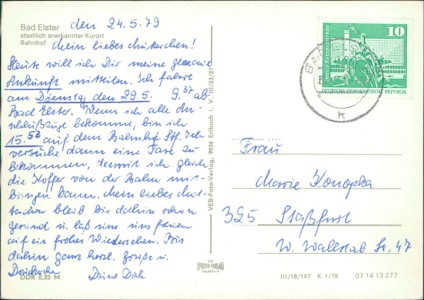 Bad Elster
staatlich anerkannter Kurort
Bahnhof
den 24.5.79
Mein liebes
Heute will ich Dir meine genaue
Ankunft mitteilen. Ich fahre
am Dienstag, den 29.5. 9.37 ab
Bad Elster. Wenn ich alle An-
schlüsse bekomme, bin ich
15.58 auf dem Bahnhof Stf. Ich
versuche dann eine Taxe zu
bekommen, damit ich gleich
die Koffer von der Bahn mit-
bringen kann. Mein liebes
bleib bis dahin schön
gesund u. laß uns uns freuen
auf ein frohes Wiedersehen. Bis
dahin ganz herzl. Grüße u.
DDR 0,25 M
VEB Foto-Verlag, 9934 Erlbach i. V.
10
DEUTSCHE DEMOKRATISCHE REPUBLIK
k
Frau
Marie Konopka
325 Staßfurt
W. Wallstab Str. 47
III/18/197 K 1/78 07 14 13 277